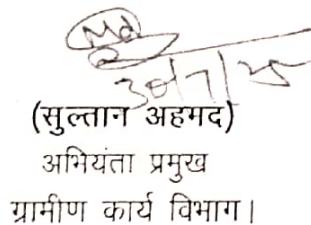 (सुल्तान अहमद)
अभियंता प्रमुख
ग्रामीण कार्य विभाग।